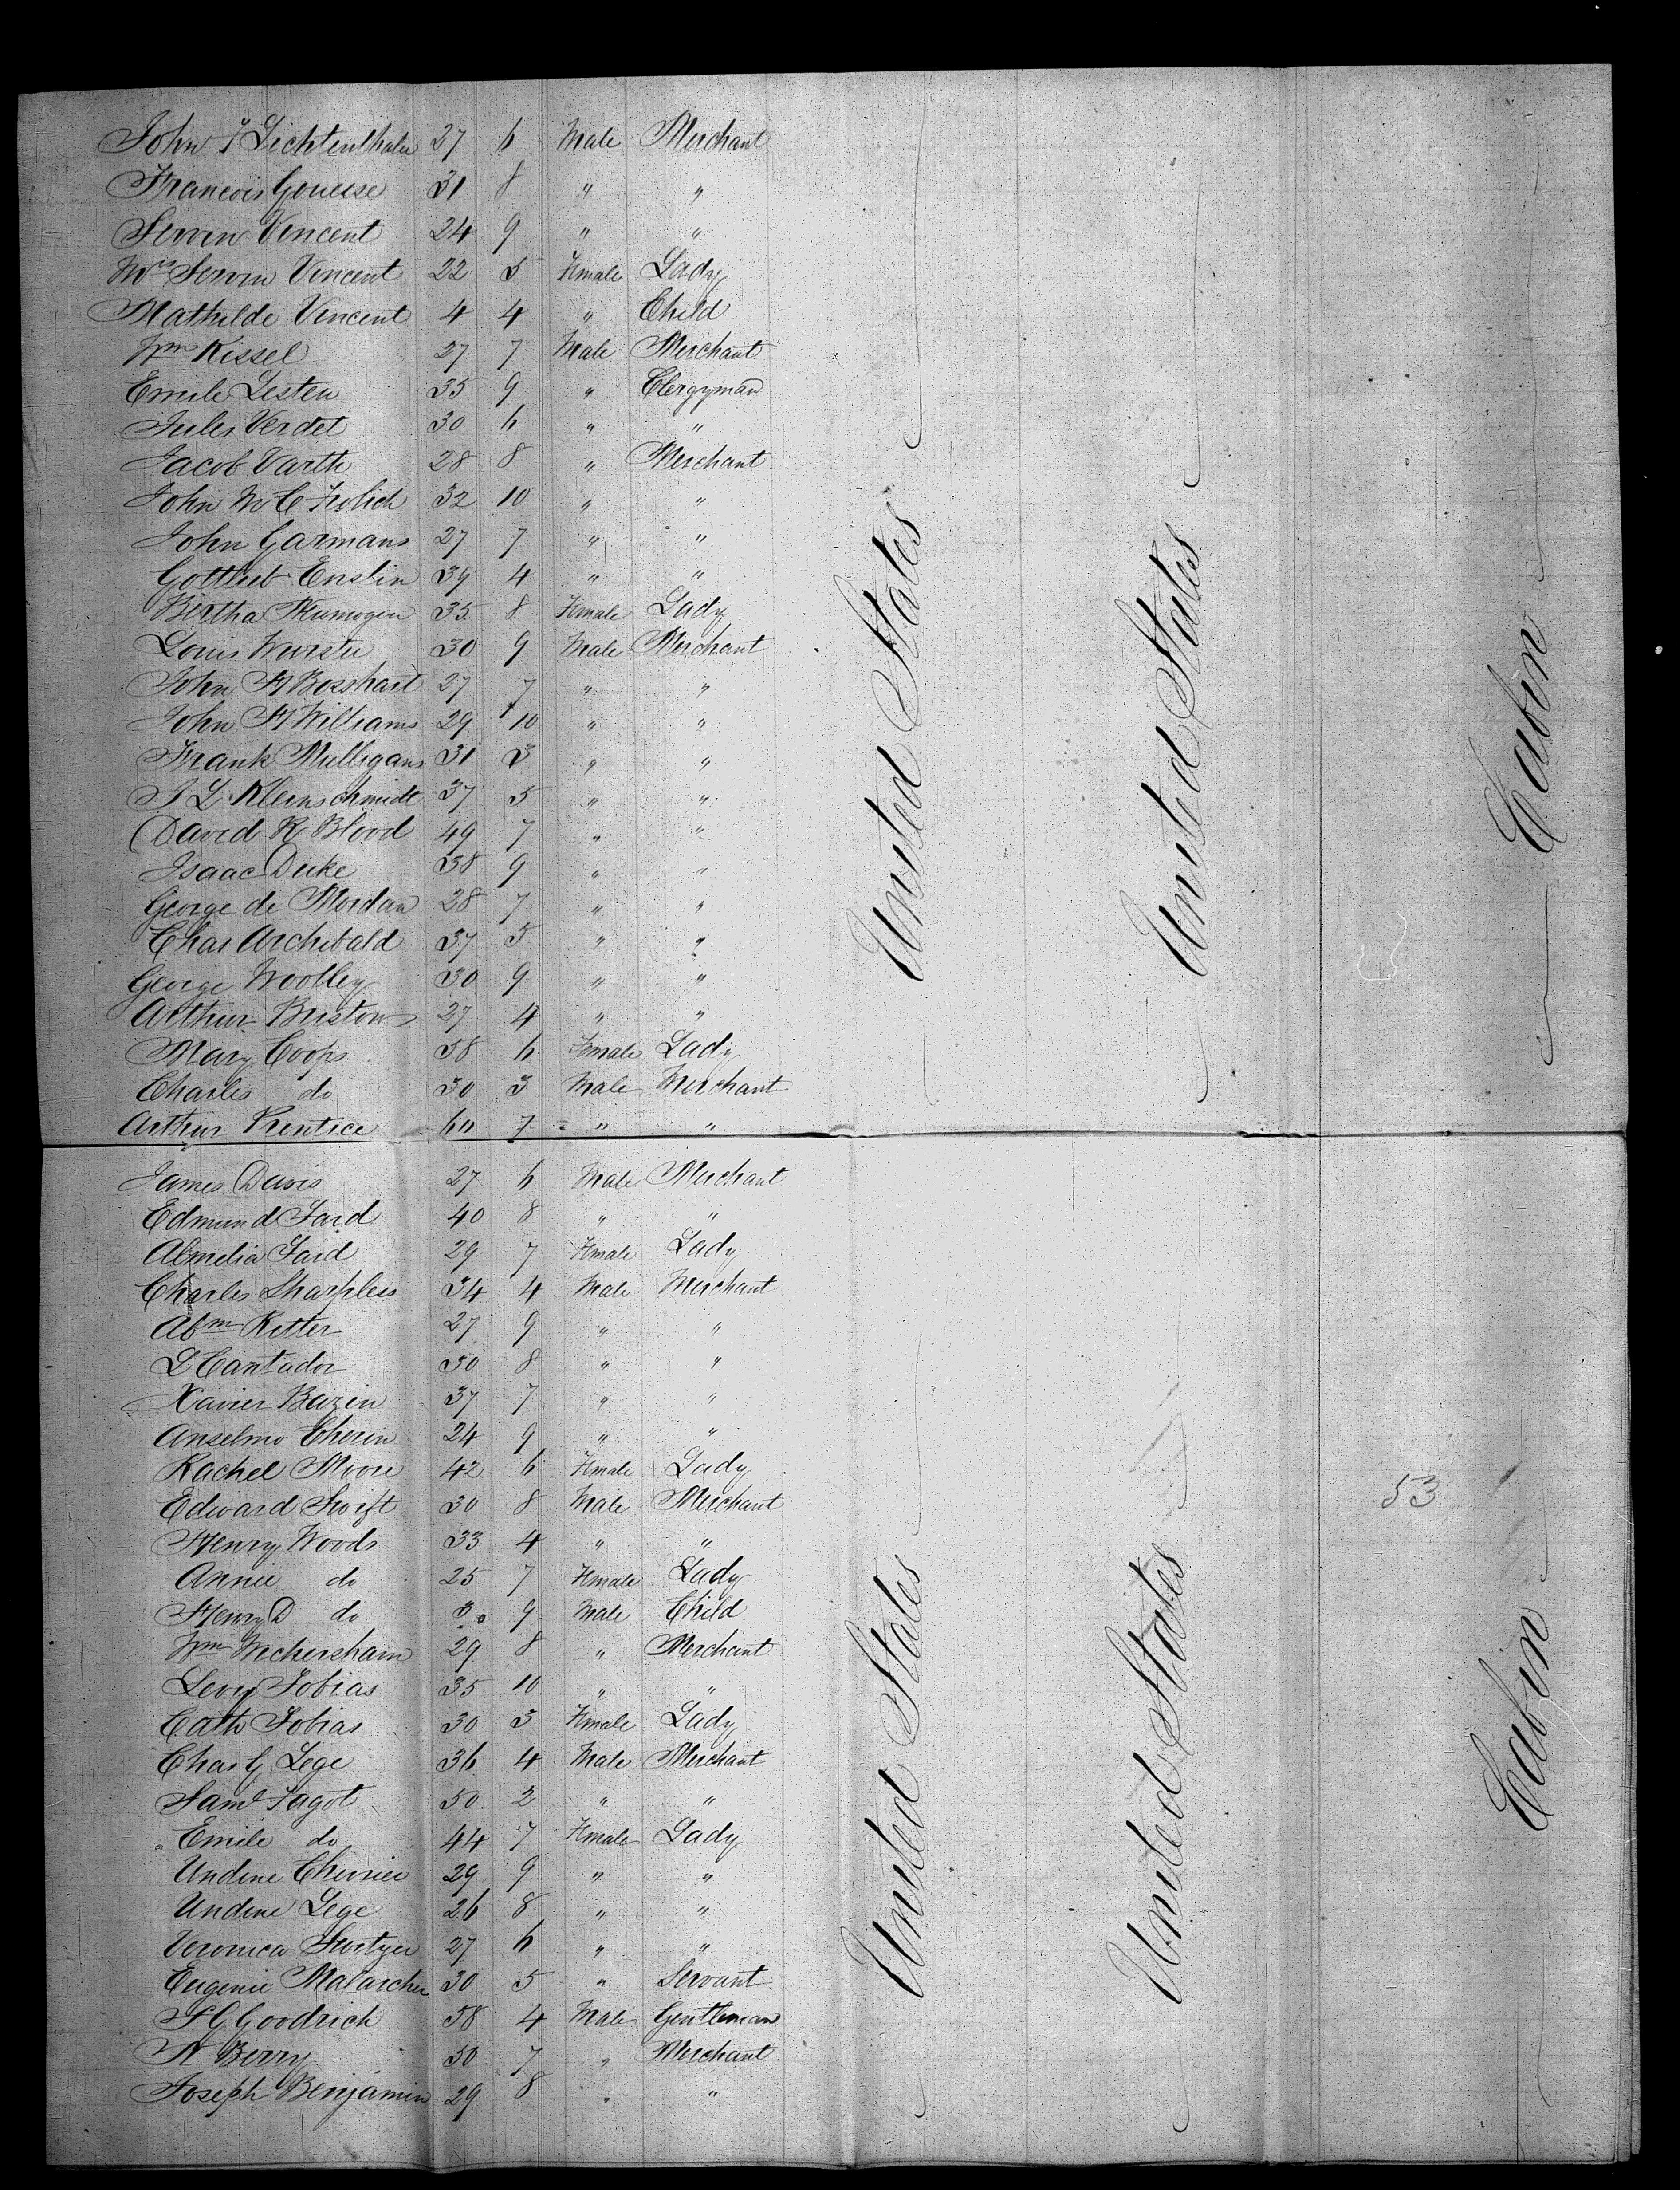 John F Lichtenthaler 27 6 Male Merchant
Francois Gouesse 31 8 " "
Servin Vincent 24 9 " "
Mrs Servin Vincent 22 5 Female Lady
Mathilde Vincent 4 4 " Child
Wm Kissel 27 7 Male Merchant
Emile Lesten 35 9 " Clergyman
Jules Verdet 30 6 " "
Jacob Varth 28 8 " Merchant
John W C Frolich 32 10 " "
John Garmans 27 7 " "
Gottlieb Enslin 39 4 " "
Bertha 35 8 Female Lady
Louis Wurster 30 9 Male Merchant
John H Bosshart 27 7 " "
John H Williams 29 10 " "
Frank Mulligan 31 3 " "
J L Kleinschmidt 37 5 " "
David R Blood 49 7 " "
Isaac Duke 38 9 " "
George de Mordan 28 7 " "
Chas Archibald 37 5 " "
George Woolley 30 9 " "
Arthur Bristow 27 4 " "
Mary Coops 38 6 Female Lady
Charles do 30 3 Male Merchant
Arthur Prentice 60 7 " "
United States United States Cabin
James Davis 27 6 Male Merchant
Edmund Jard 40 8 " "
Almelia Jard 29 7 Female Lady
Charles Sharpless 34 4 Male Merchant
Abm Ritter 27 9 " "
L Cantador 30 8 " "
Xavier Bazin 37 7 " "
Anselmo Cherin 24 9 " "
Rachel Moore 42 6 Female Lady
Edward Swift 30 8 Male Merchant
Henry Woods 33 4 " "
Annie do 25 7 Female Lady
Henry D do 9 Male Child
Wm Weckersham 29 8 " Merchant
Levy Tobias 35 10 " "
Cath Tobias 30 3 Female Lady
Chas G Lege 36 4 Male Merchant
Saml Fagot 50 2 " "
Emile do 44 7 Female Lady
Undine Cherrier 29 9 " "
Undine Lege 26 8 " "
Veronica 27 6 " "
Eugenie Malarcher 30 5 " Servant
Goodrich 58 4 Male Gentleman
H Berry 30 7 " Merchant
Joseph Benjamin 29 8 " "
United States United States 53 Cabin